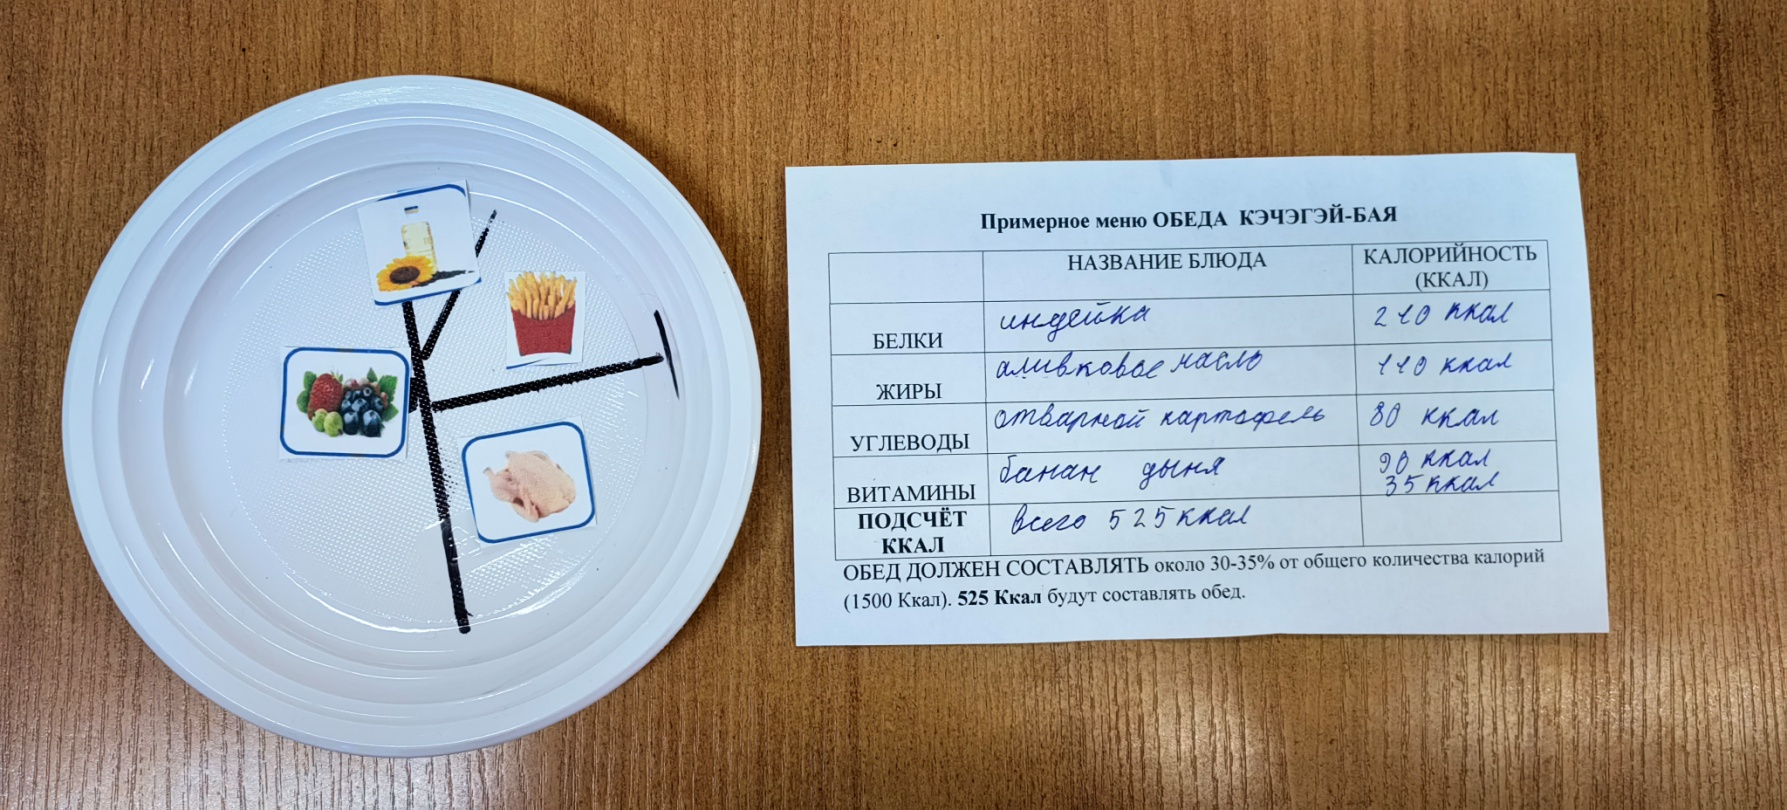 Примерное меню ОБЕДА КЭЧЭГЭЙ-БАЯ
НАЗВАНИЕ БЛЮДА КАЛОРИЙНОСТЬ (ККАЛ)
БЕЛКИ индейка 210 ккал
ЖИРЫ аливковое масло 110 ккал
УГЛЕВОДЫ отварной картофель 80 ккал
ВИТАМИНЫ банан дыня 90 ккал
35 ккал
ПОДСЧЁТ ККАЛ всего 525 ккал
ОБЕД ДОЛЖЕН СОСТАВЛЯТЬ около 30-35% от общего количества калорий
(1500 Ккал). 525 Ккал будут составлять обед.